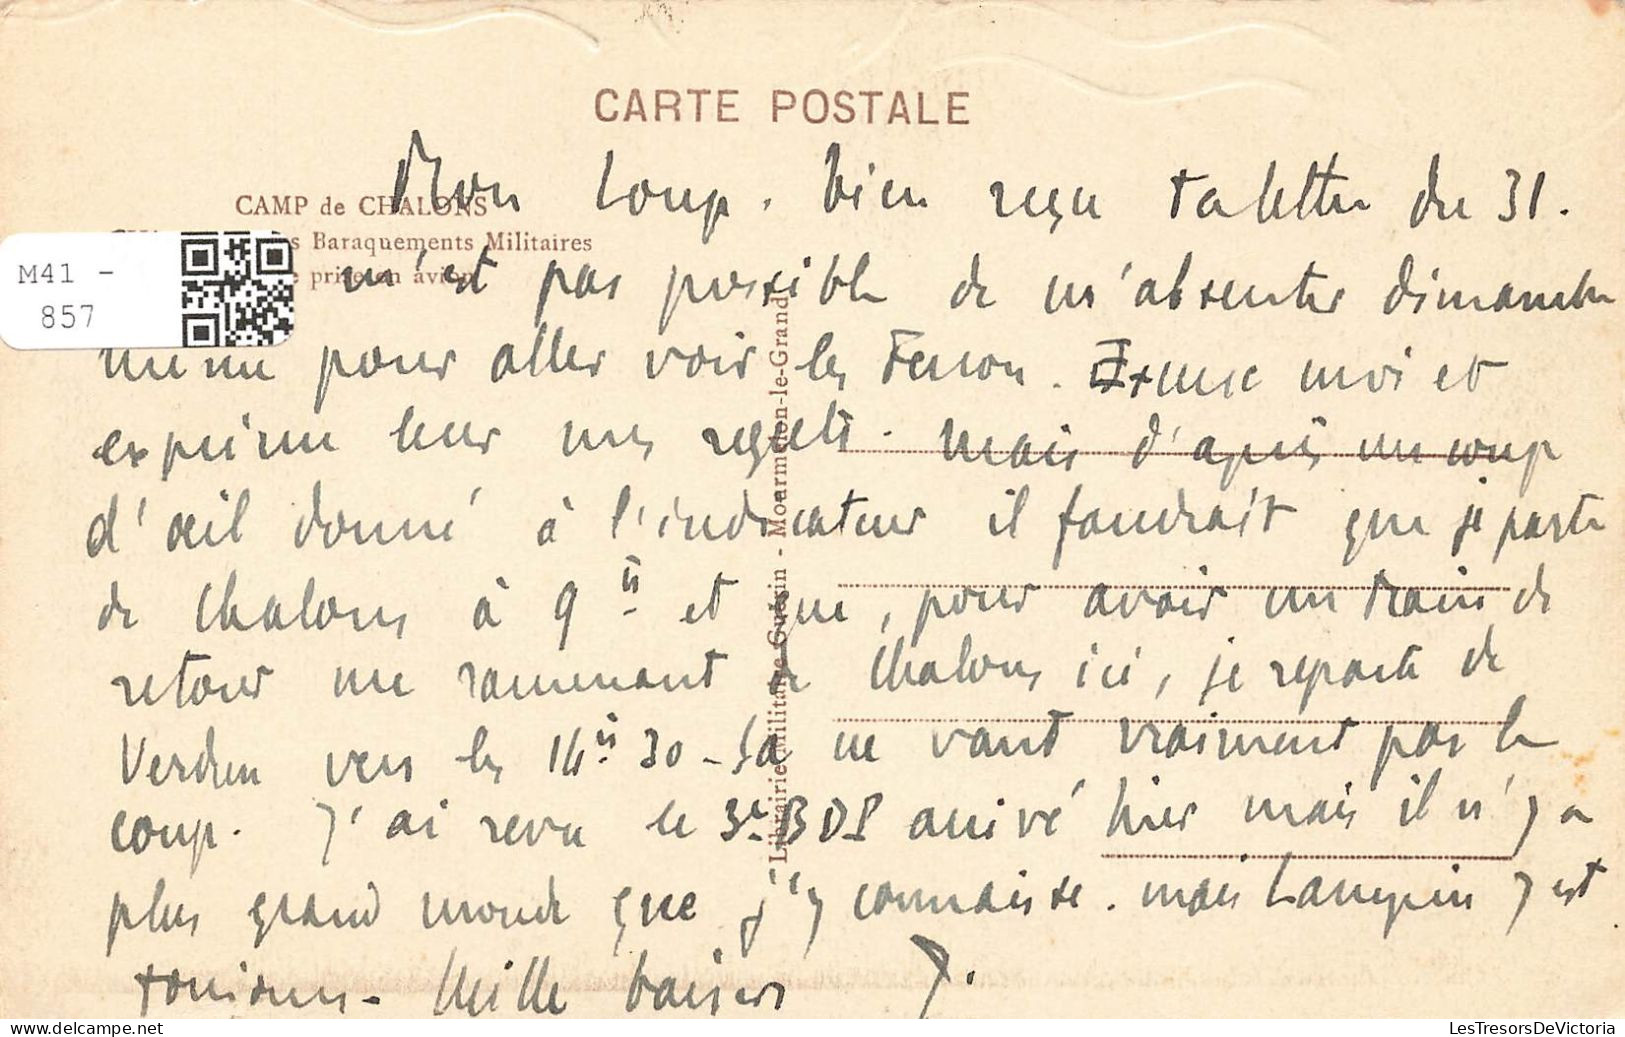 CARTE POSTALE
CAMP de CHALONS
s Baraquements Militaires
e prise en avion
M41 -
857
Librairie Militaire Guérin - Mourmelon-le-Grand
Mon loup. bien reçu ta lettre du 31.
m'est pas possible de m'absenter dimanche
même pour aller voir les Ferron. Excuse moi et
exprime leur mes regrets. Mais d'après un coup
d'œil donné à l'indicateur il faudrait que je parte
de Chalons à 9h et que, pour avoir un train de
retour me ramenant de Chalons ici, je reparte de
Verdun vers les 14h 30 - Ça ne vaut vraiment pas le
coup. J'ai revu le 3e BDP arrivé hier mais il n'y a
plus grand monde que j'y connaisse. mais y est
toujours - Mille baisers J.
LesTresorsDeVictoria